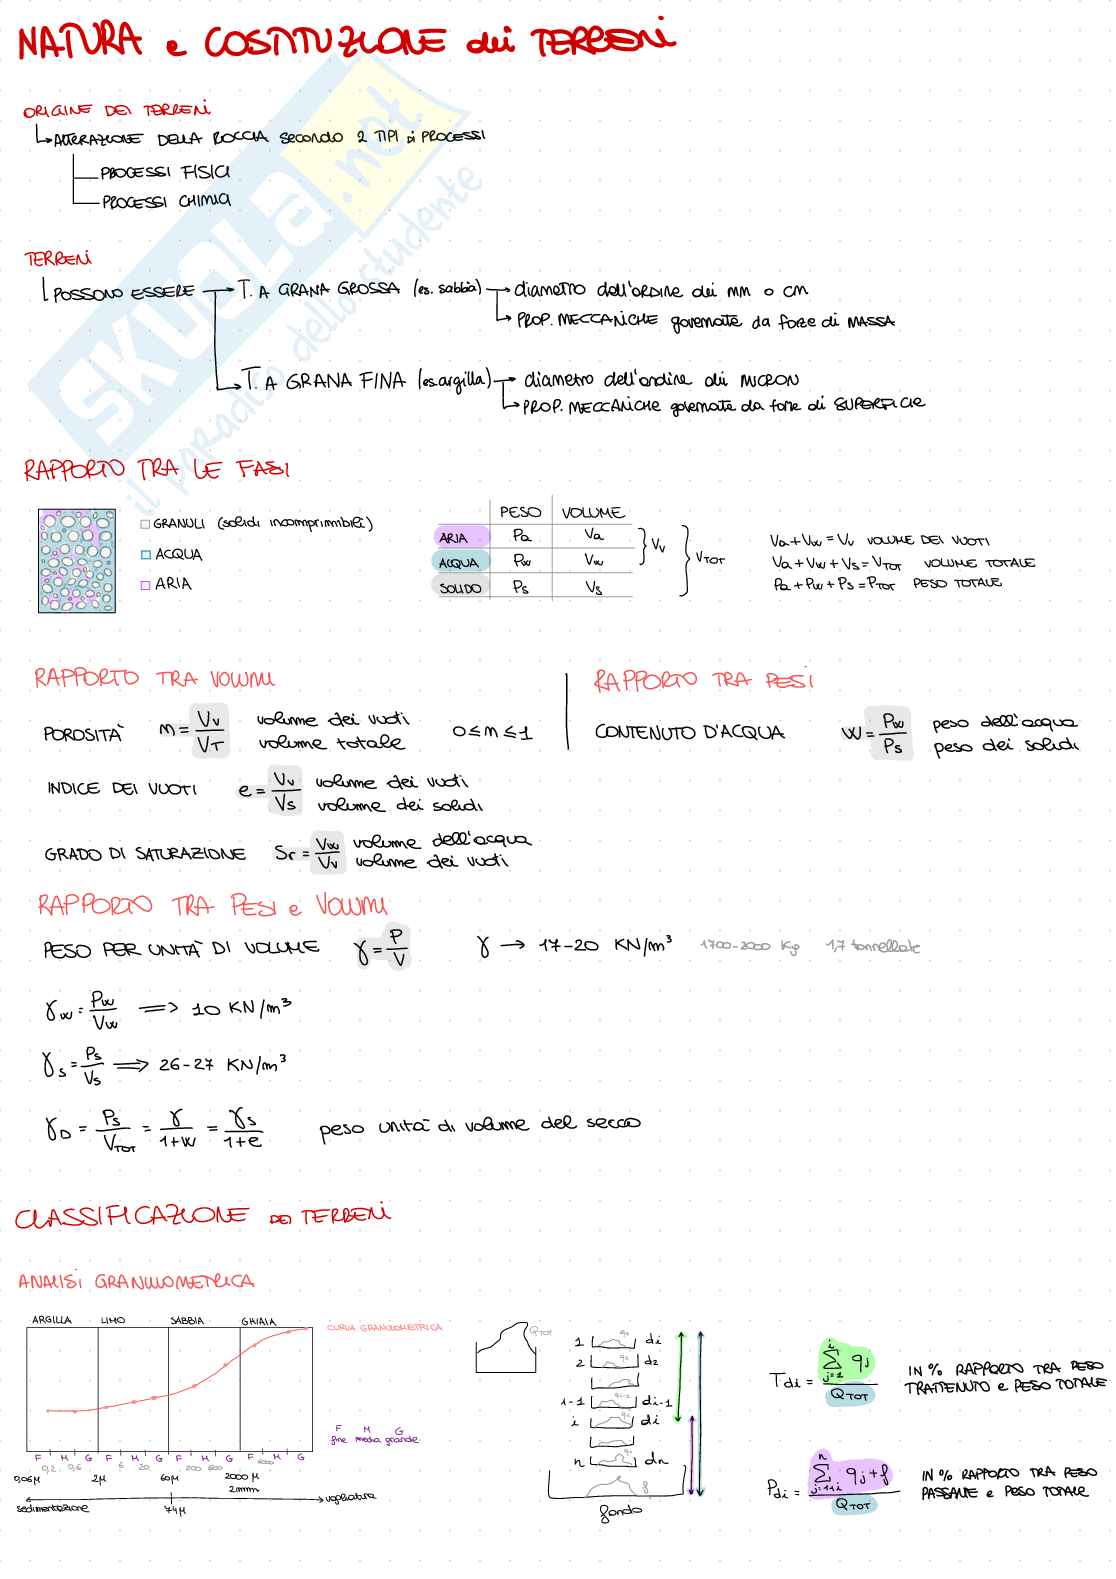 NATURA e COSTITUZIONE dei TERRENI
ORIGINE DEI TERRENI
ALTERAZIONE DELLA ROCCIA secondo 2 TIPI di PROCESSI
PROCESSI FISICI
PROCESSI CHIMICI
SKUOLA.net
il paradiso dello studente
TERRENI
POSSONO ESSERE → T. A GRANA GROSSA (es. sabbia) → diametro dell'ORDINE dei mm o cm
PROP. MECCANICHE governate da forze di MASSA
T. A GRANA FINA (es. argilla) → diametro dell'ordine dei MICRON
PROP. MECCANICHE governate da forze di SUPERFICIE
RAPPORTO TRA LE FASI
GRANULI (solidi incomprimibili)
ACQUA
ARIA
PESO VOLUME
ARIA Pa Va
ACQUA Pw Vw
SOLIDO Ps Vs
Vv
VTOT
Va + Vw = Vv VOLUME DEI VUOTI
Va + Vw + Vs = VTOT VOLUME TOTALE
Pa + Pw + Ps = PTOT PESO TOTALE
RAPPORTO TRA VOLUMI
POROSITÀ n = Vv/VT volume dei vuoti / volume totale 0 ≤ n ≤ 1
INDICE DEI VUOTI e = Vv/Vs volume dei vuoti / volume dei solidi
GRADO DI SATURAZIONE Sr = Vw/Vv volume dell'acqua / volume dei vuoti
RAPPORTO TRA PESI
CONTENUTO D'ACQUA w = Pw/Ps peso dell'acqua / peso dei solidi
RAPPORTO TRA PESI e VOLUMI
PESO PER UNITÀ DI VOLUME γ = P/V γ → 17-20 KN/m³ 1700-2000 Kg 1,7 tonnellate
γw = Pw/Vw ⟹ 10 KN/m³
γs = Ps/Vs ⟹ 26-27 KN/m³
γD = Ps/VTOT = γ/1+w = γs/1+e peso unità di volume del secco
CLASSIFICAZIONE DEI TERRENI
ANALISI GRANULOMETRICA
ARGILLA LIMO SABBIA GHIAIA
CURVA GRANULOMETRICA
F M G
fine media grande
F M G F M G F M G F M G
0,2 0,6 6 20 200 600 6000
0,06μ 2μ 60μ 2000μ
2mm
sedimentazione 74μ vagliatura
QTOT
1 q1 d1
2 q2 d2
i-1 qi-1 di-1
i qi di
n qn dn
f
fondo
Tdi = Σ j=1 i qj / QTOT
IN % RAPPORTO TRA PESO
TRATTENUTO e PESO TOTALE
Pdi = Σ j=i+1 n qj + f / QTOT
IN % RAPPORTO TRA PESO
PASSANTE e PESO TOTALE